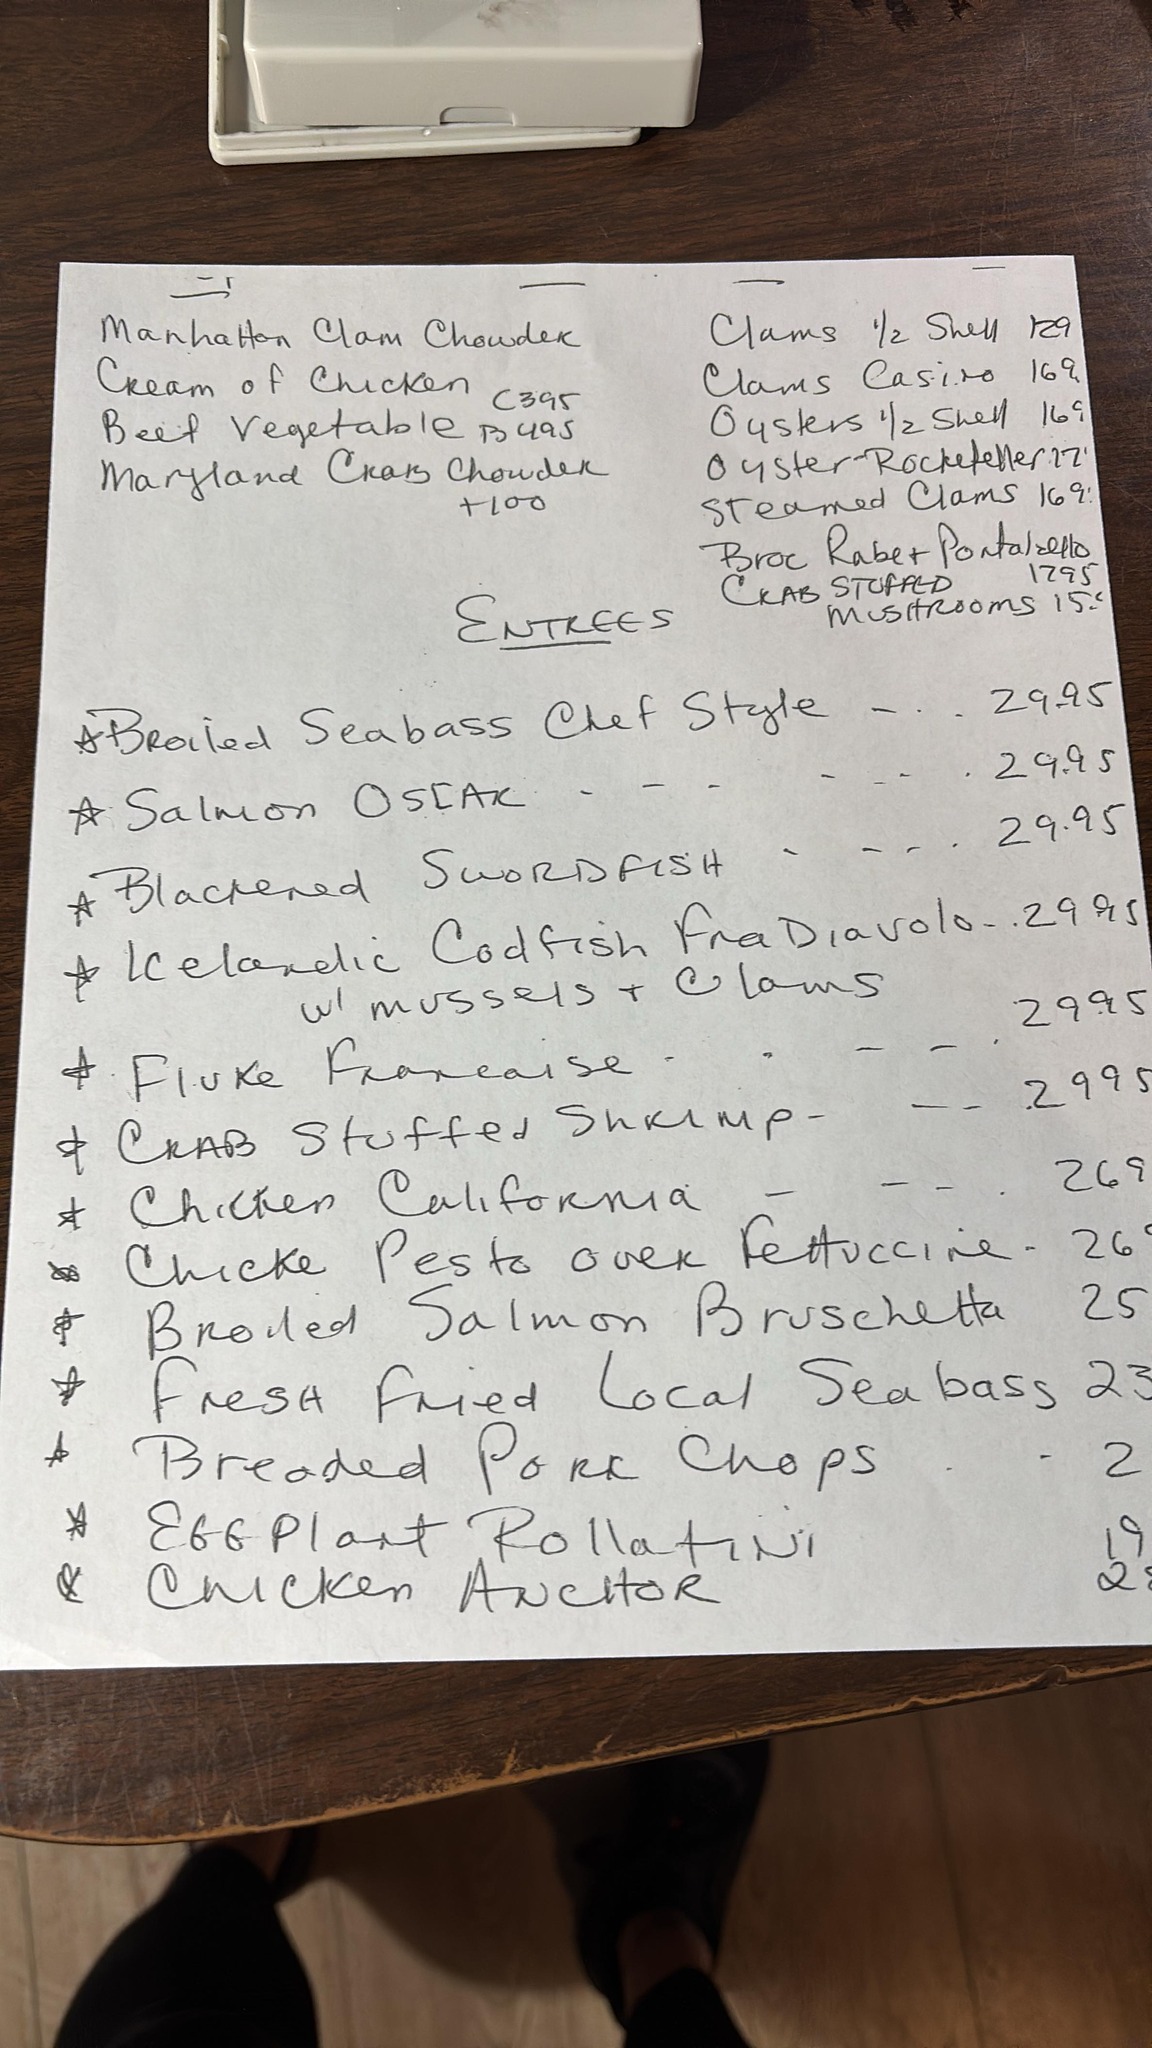 Manhatton Clam Chowder
Cream of Chicken
C 395
Beef Vegetable B 495
Maryland Crab Chowder
+100
Clams 1/2 Shell 129
Clams Casino 169
Oysters 1/2 Shell 169
Oyster Rockefeller 17
Steamed Clams 169
Broc Rabe + Portabello
1795
Crab STUFFED
MUSHROOMS 15
ENTREES
Broiled Seabass Chef Style - . . . 29.95
Salmon OSCAR . - - - - - . 29.95
Blackened SWORDFISH - - - - . 29.95
Icelandic Codfish FraDiavolo - . . 29 95
w/ mussels + Clams
Fluke Francaise - . - - . 29.95
CRAB Stuffed Shrimp - - - . 2995
Chicken California - - - - . 269
Chicke Pesto over Fettuccine - 26
Broiled Salmon Bruschetta 25
Fresh Fried Local Seabass 23
Breaded Pork Chops . - 2
EGGPlant Rollatini 19
Chicken ANCHOR 28